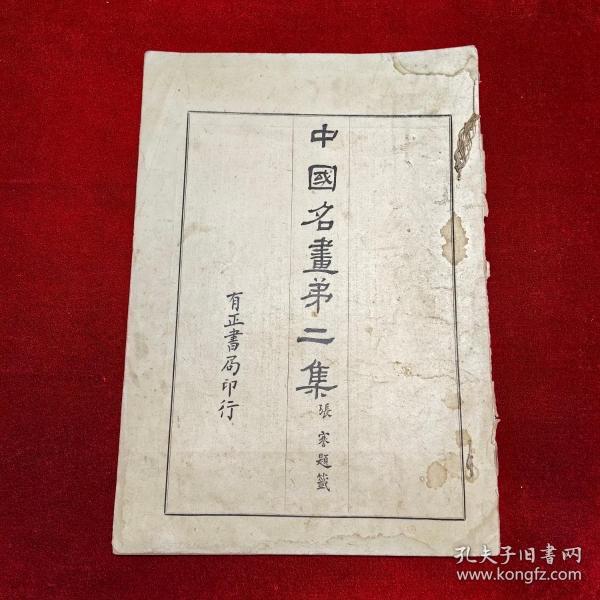 中國名畫第二集
張騫題籤
有正書局印行
孔夫子旧书网
www.kongfz.com